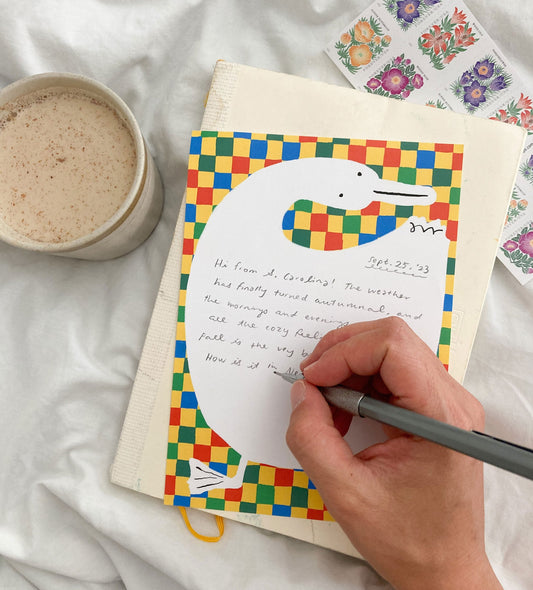 Sept. 25, '23
Hi from S. Carolina! The weather
has finally turned autumnal, and
the mornings and evenings
all the cozy feel
Fall is the very b
How is it in Ne